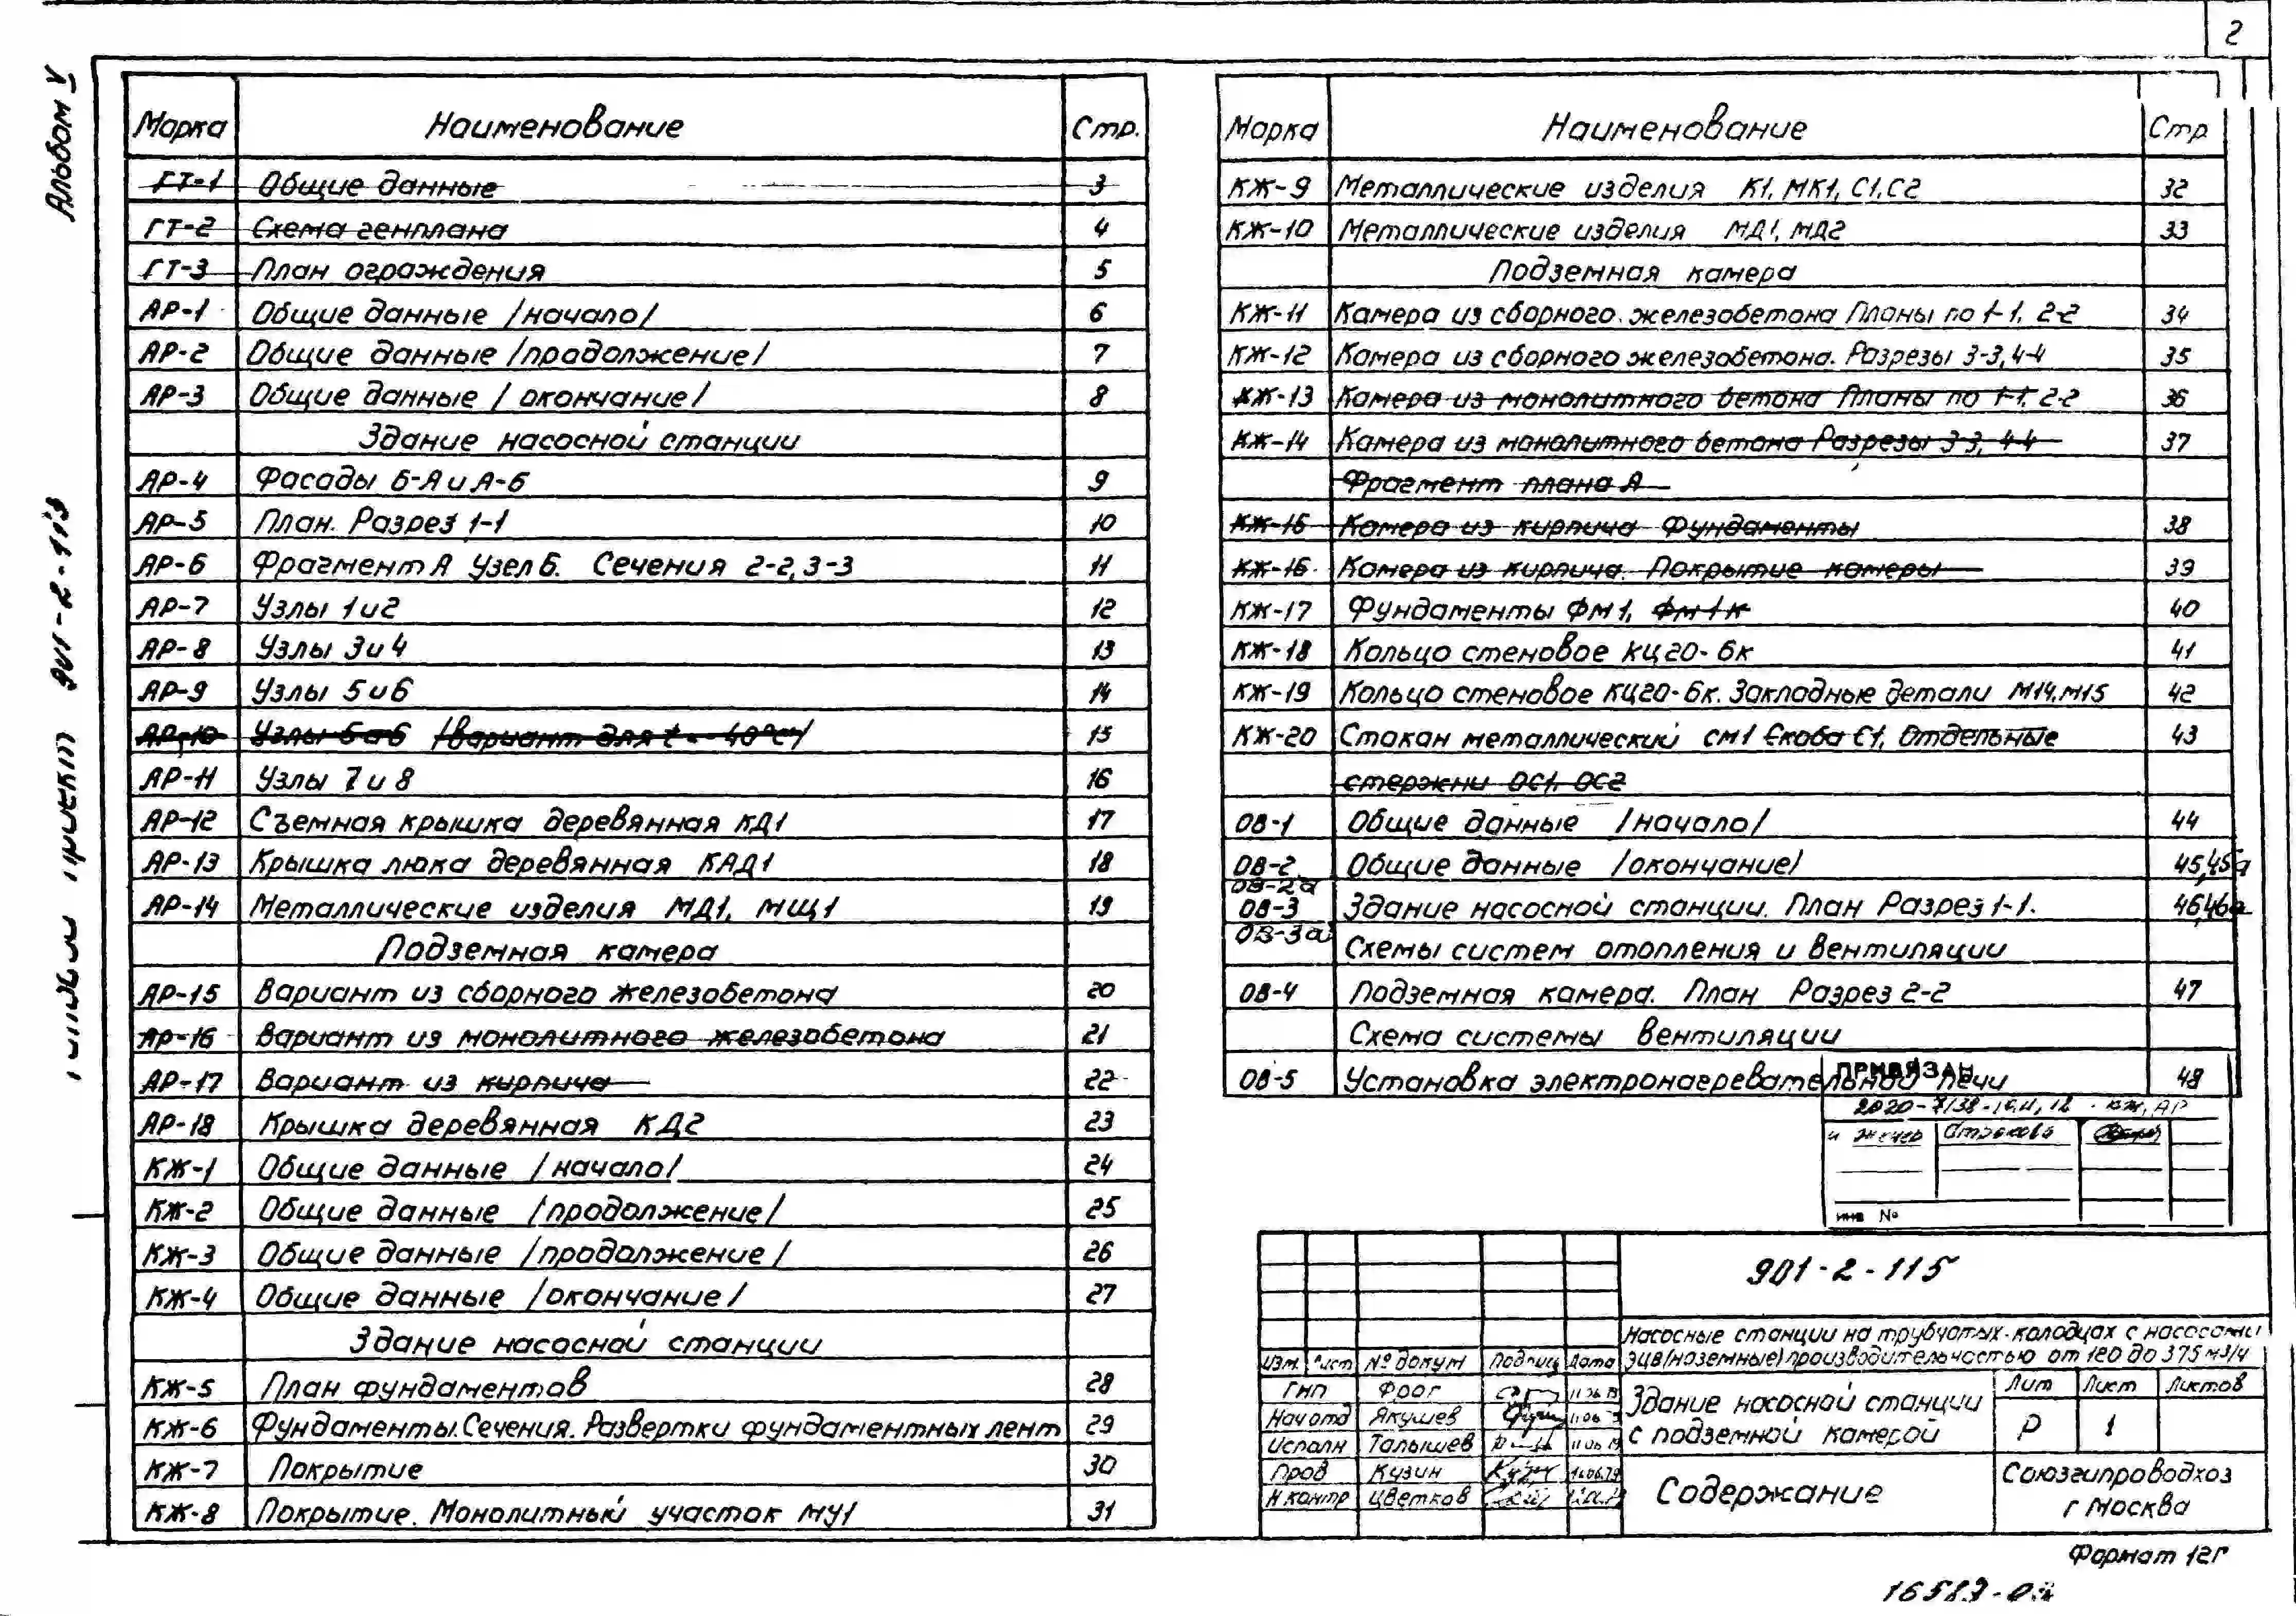 2
Альбом V
Типовой проект 901-2-115
Марка Наименование Стр.
ГТ-1 Общие данные 3
ГТ-2 Схема генплана 4
ГТ-3 План ограждения 5
АР-1 Общие данные /начало/ 6
АР-2 Общие данные /продолжение/ 7
АР-3 Общие данные /окончание/ 8
Здание насосной станции
АР-4 Фасады Б-А и А-Б 9
АР-5 План. Разрез 1-1 10
АР-6 Фрагмент А Узел Б. Сечения 2-2, 3-3 11
АР-7 Узлы 1 и 2 12
АР-8 Узлы 3 и 4 13
АР-9 Узлы 5 и 6 14
АР-10 Узлы 5 и 6 /вариант для t=-40°С/ 15
АР-11 Узлы 7 и 8 16
АР-12 Съемная крышка деревянная КД1 17
АР-13 Крышка люка деревянная КАД1 18
АР-14 Металлические изделия МД1, МЩ1 19
Подземная камера
АР-15 Вариант из сборного железобетона 20
АР-16 Вариант из монолитного железобетона 21
АР-17 Вариант из кирпича 22
АР-18 Крышка деревянная КД2 23
КЖ-1 Общие данные /начало/ 24
КЖ-2 Общие данные /продолжение/ 25
КЖ-3 Общие данные /продолжение/ 26
КЖ-4 Общие данные /окончание/ 27
Здание насосной станции
КЖ-5 План фундаментов 28
КЖ-6 Фундаменты. Сечения. Развертки фундаментных лент 29
КЖ-7 Покрытие 30
КЖ-8 Покрытие. Монолитный участок МУ1 31
Марка Наименование Стр
КЖ-9 Металлические изделия К1, МК1, С1, С2 32
КЖ-10 Металлические изделия МД1, МД2 33
Подземная камера
КЖ-11 Камера из сборного железобетона Планы по 1-1, 2-2 34
КЖ-12 Камера из сборного железобетона. Разрезы 3-3, 4-4 35
КЖ-13 Камера из монолитного бетона Планы по 1-1, 2-2 36
КЖ-14 Камера из монолитного бетона Разрезы 3-3, 4-4 37
Фрагмент плана А
КЖ-15 Камера из кирпича Фундаменты 38
КЖ-16 Камера из кирпича. Покрытие камеры 39
КЖ-17 Фундаменты ФМ1, ФМ1к 40
КЖ-18 Кольцо стеновое КЦ20-6к 41
КЖ-19 Кольцо стеновое КЦ20-6к. Закладные детали М14, М15 42
КЖ-20 Стакан металлический СМ1 Скоба С1, Отдельные 43
стержни ОС1, ОС2
ОВ-1 Общие данные /начало/ 44
ОВ-2 Общие данные /окончание/ 45,45а
ОВ-2а
ОВ-3 Здание насосной станции. План Разрез 1-1. 46,46а
ОВ-3а Схемы систем отопления и вентиляции
ОВ-4 Подземная камера. План Разрез 2-2 47
Схема системы вентиляции
ОВ-5 Установка электронагревательной печи 48
ПРИВЯЗАН
инв №
901-2-115
Насосные станции на трубчатых колодцах с насосами
ЭЦВ/наземные/производительностью от 120 до 375 м3/ч
Изм. Лист № докум Подпись Дата
ГИП Фрог
Нач отд Якушев
Исполн Талышев
Пров Кузин
Н контр Цветков
Здание насосной станции
с подземной камерой
Лит Лист Листов
Р 1
Содержание
Союзгипроводхоз
г Москва
Формат 12г